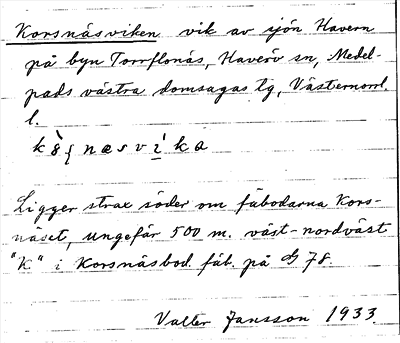 Korsnäsviken vik av sjön Havern
på byn Torrflonäs, Haverö sn, Medel-
pads västra domsagas tg, Västernorrl.
l.
Ligger strax söder om fäbodarna Kors-
näset, ungefär 500 m. väst-nordväst
"K" i Korsnäsbod. fäb. på G 78.
Valter Jansson 1933.